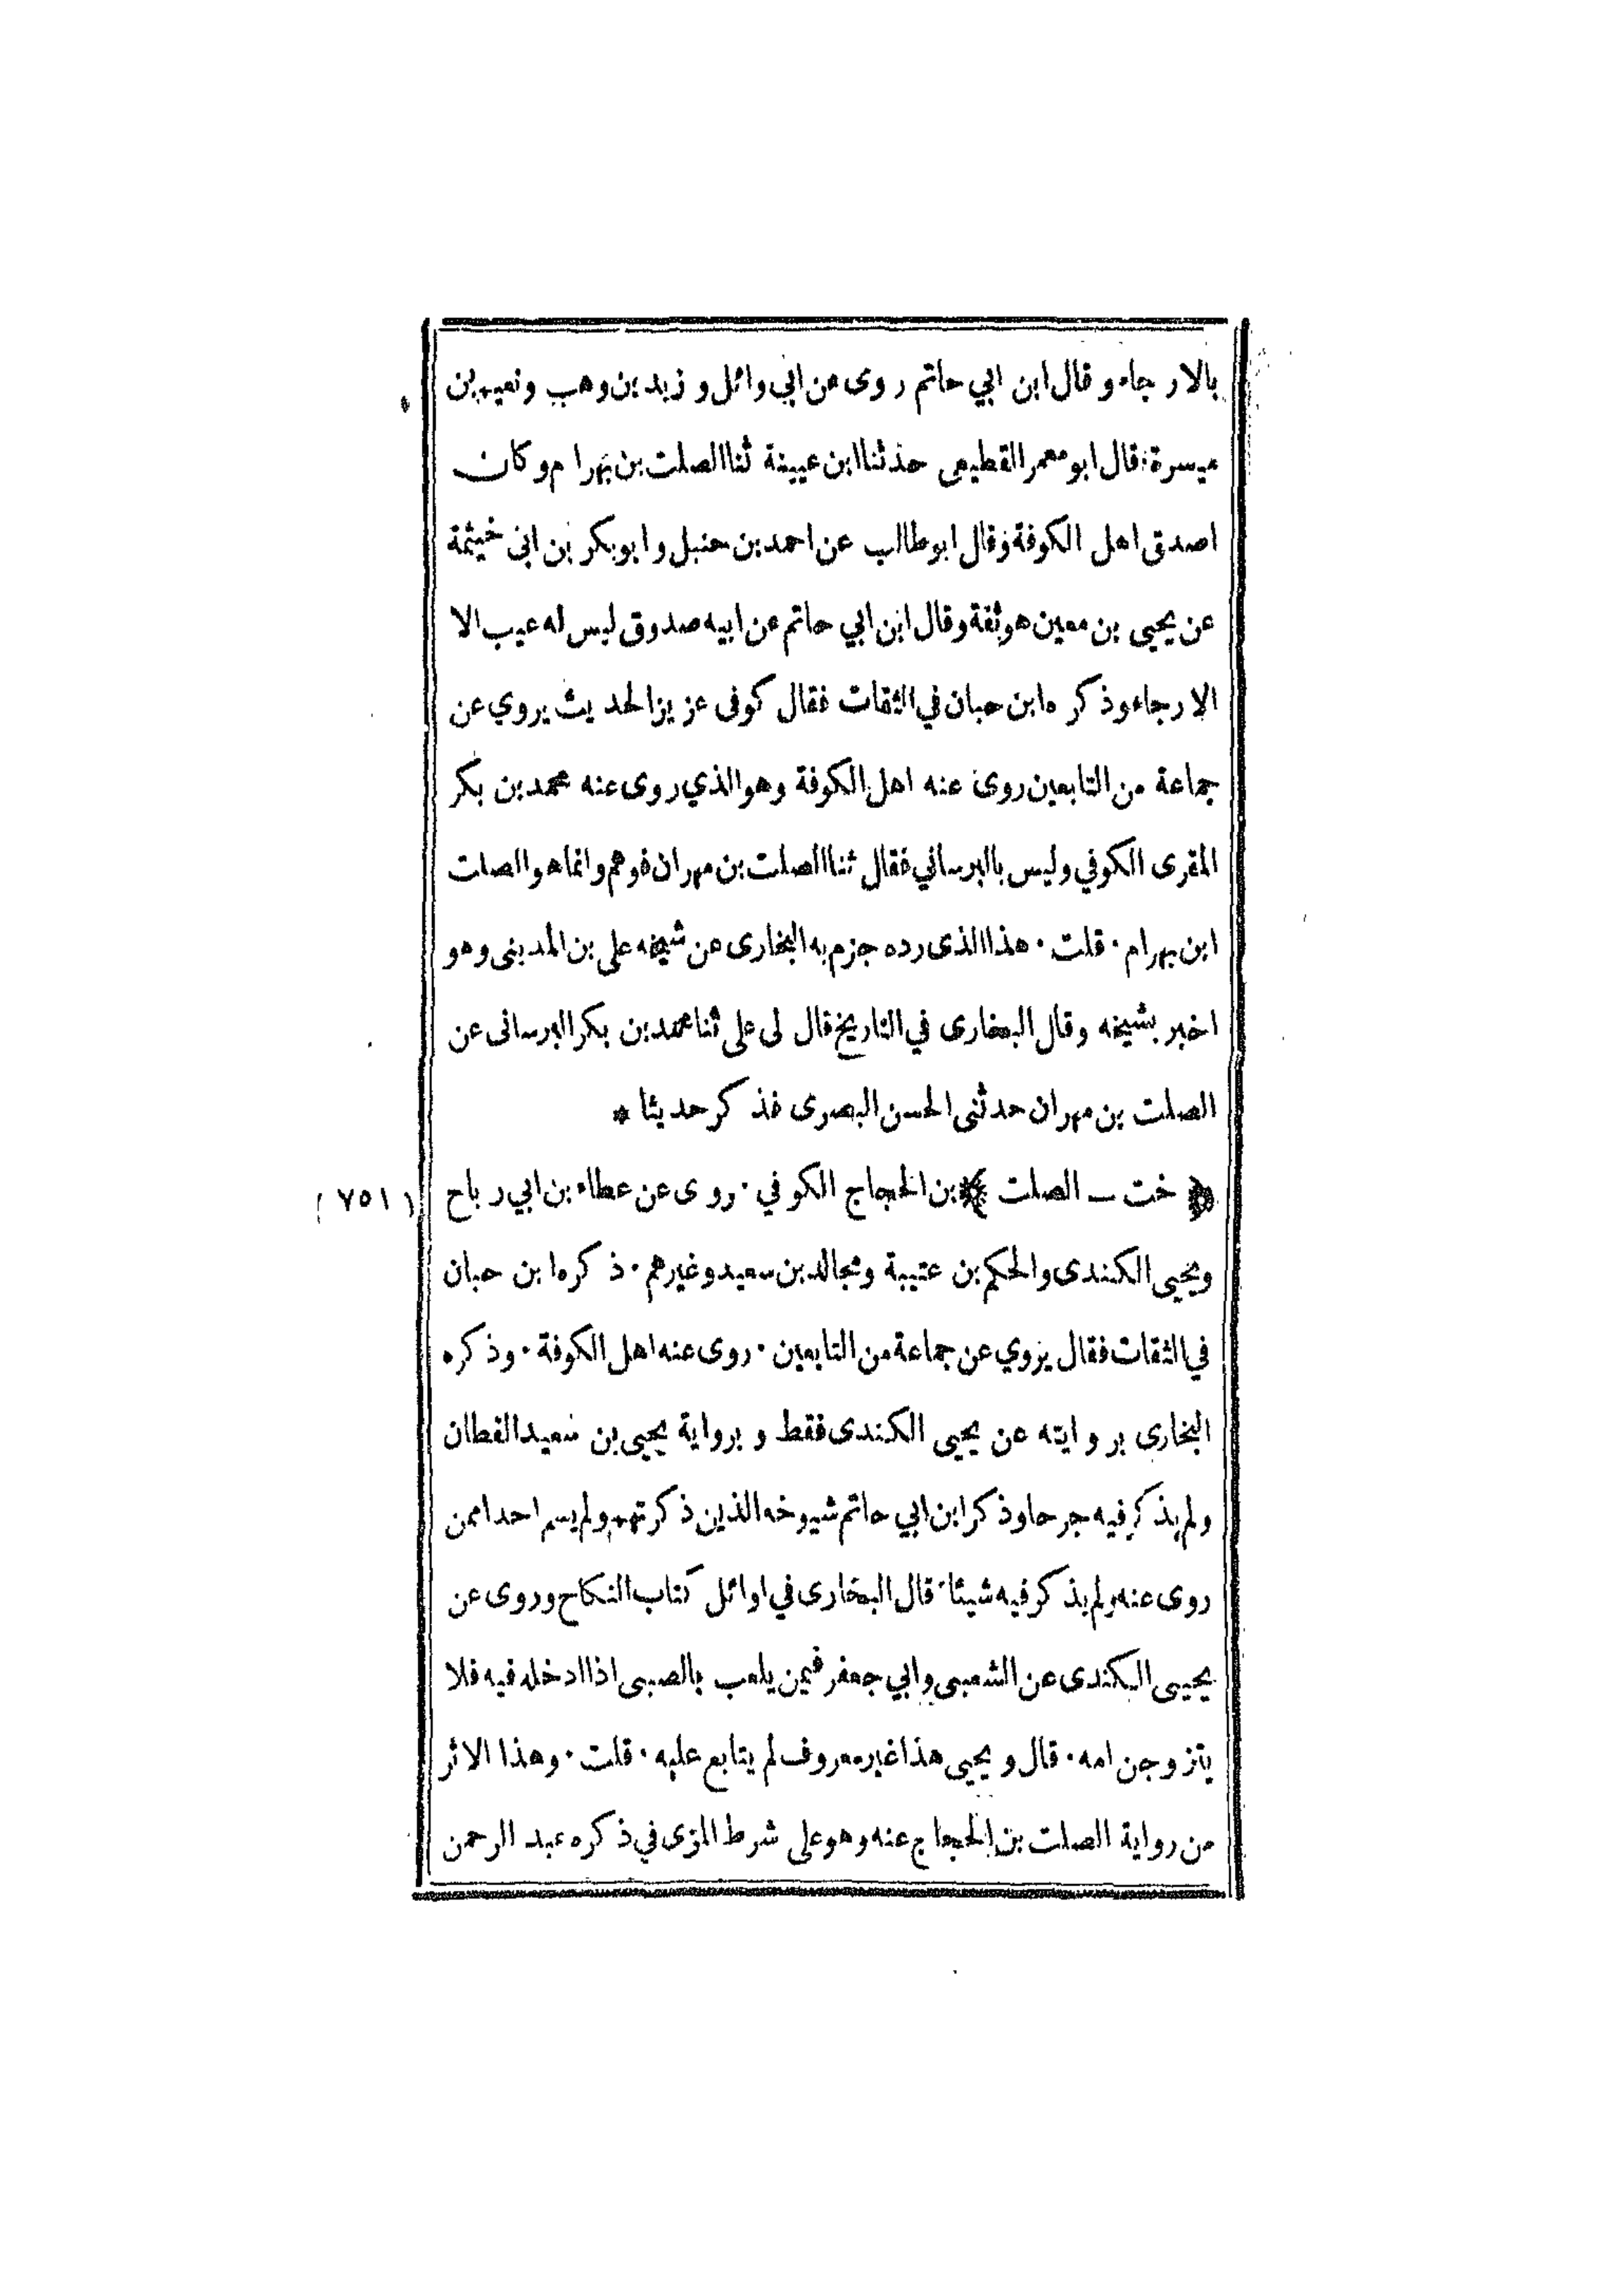 بالارجاء وقال ابن ابي حاتم روى عن ابي وائل وزيد بن وهب ونعيم بن
ميسرة قال ابو معمر القطيعي حدثنا ابن عيينة ثنا الصلت بن بهرام وكان
اصدق اهل الكوفة وقال ابو طالب عن احمد بن حنبل وابو بكر بن ابى خيثمة
عن يحيى بن معين هو ثقة وقال ابن ابي حاتم عن ابيه صدوق ليس له عيب الا
الارجاء وذكره ابن حبان في الثقات فقال كوفى عزيز الحديث يروي عن
جماعة من التابعين روى عنه اهل الكوفة وهو الذي روى عنه محمد بن بكر
المقرى الكوفي وليس بالبرساني فقال ثنا الصلت بن مهران فوهم وانما هو الصلت
ابن بهرام · قلت · هذا الذى رده جزم به البخارى عن شيخه على بن المدينى وهو
اخبر بشيخه وقال البخارى في التاريخ قال لى على ثنا محمد بن بكر البرسانى عن
الصلت بن مهران حدثنى الحسن البصرى فذكر حديثا *
﴿ خت – الصلت ﴾ بن الحجاج الكوفي · روى عن عطاء بن ابي رباح (٧٥١)
ويحيى الكندى والحكم بن عتيبة ومجالد بن سعيد وغيرهم · ذكره ابن حبان
في الثقات فقال يروي عن جماعة من التابعين · روى عنه اهل الكوفة · وذكره
البخارى بروايته عن يحيى الكندى فقط وبرواية يحيى بن سعيد القطان
ولم يذكر فيه جرحا وذكر ابن ابي حاتم شيوخه الذين ذكرتهم ولم يسم احدا ممن
روى عنه ولم يذكر فيه شيئا · قال البخارى في اوائل كتاب النكاح وروى عن
يحيى الكندى عن الشعبى وابي جعفر فيمن يلعب بالصبى اذا ادخله فيه فلا
يتزوجن امه · قال ويحيى هذا غير معروف لم يتابع عليه · قلت · وهذا الاثر
من رواية الصلت بن الحجاج عنه وهو على شرط المزى في ذكره عبد الرحمن